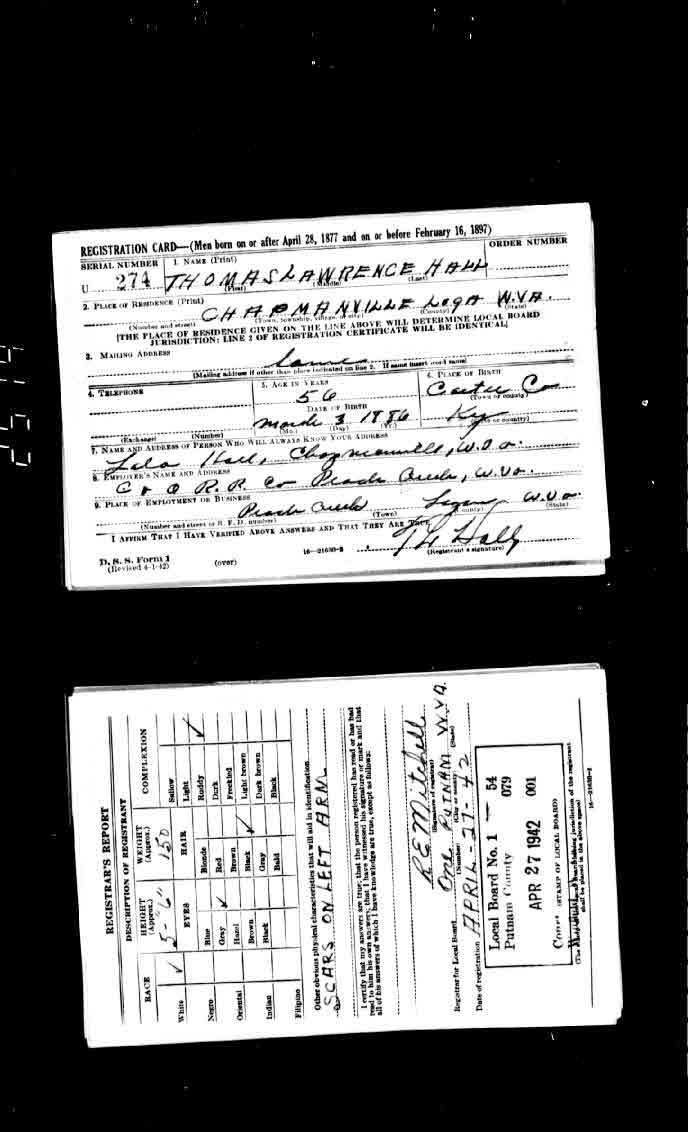 REGISTRATION CARD—(Men born on or after April 28, 1877 and on or before February 16, 1897)
SERIAL NUMBER
1. NAME (Print)
ORDER NUMBER
U 274 THOMAS LAWRENCE HALL
(First) (Middle) (Last)
2. PLACE OF RESIDENCE (Print)
CHAPMANVILLE LOGA W.VA.
(Number and street) (Town, township, village, or city) (County) (State)
[THE PLACE OF RESIDENCE GIVEN ON THE LINE ABOVE WILL DETERMINE LOCAL BOARD
JURISDICTION; LINE 2 OF REGISTRATION CERTIFICATE WILL BE IDENTICAL]
3. MAILING ADDRESS
Same
[Mailing address if other than place indicated on line 2. If same insert word same]
4. TELEPHONE
5. AGE IN YEARS
6. PLACE OF BIRTH
56
Carter Co
(Town or county)
DATE OF BIRTH
March 3 1886
Ky
(Exchange) (Number) (Mo.) (Day) (Yr.) (State or country)
7. NAME AND ADDRESS OF PERSON WHO WILL ALWAYS KNOW YOUR ADDRESS
Lala Hall, Chapmanville, W.Va.
8. EMPLOYER'S NAME AND ADDRESS
C & O R.R. Co Peach Creek, W.Va.
9. PLACE OF EMPLOYMENT OR BUSINESS
Peach Creek Logan W.Va.
(Number and street or R. F. D. number) (Town) (County) (State)
I AFFIRM THAT I HAVE VERIFIED ABOVE ANSWERS AND THAT THEY ARE TRUE.
D. S. S. Form 1
(Revised 4-1-42)
(over)
16—21630-2
T L Hall
(Registrant's signature)
REGISTRAR'S REPORT
DESCRIPTION OF REGISTRANT
RACE
HEIGHT (Approx.)
WEIGHT (Approx.)
COMPLEXION
5-"6"
150
EYES
HAIR
White ✓
Negro
Oriental
Indian
Filipino
Blue
Gray ✓
Hazel
Brown
Black
Blonde
Red
Brown
Black ✓
Gray
Bald
Sallow
Light
Ruddy ✓
Dark
Freckled
Light brown
Dark brown
Black
Other obvious physical characteristics that will aid in identification
SCARS ON LEFT ARM
I certify that my answers are true; that the person registered has read or has had
read to him his own answers; that I have witnessed his signature or mark and that
all of his answers of which I have knowledge are true, except as follows:
R E Mitchell
(Signature of registrar)
Registrar for Local Board One PUTNAM W.VA.
(Number) (City or county) (State)
Date of registration APRIL-27-42
Local Board No. 1 54
Putnam County 079
APR 27 1942 001
(STAMP OF LOCAL BOARD)
(The stamp of the Local Board having jurisdiction of the registrant
shall be placed in the above space)
16—21630-2